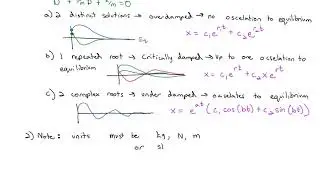 a) 2 distinct solutions → overdamped → no osselation to equilibrium
Eq
x = c₁e^{r₁t} + c₂e^{r₂t}
b) 1 repeated root → Critically damped → up to one osselation to
equilibrium
x = c₁e^{rt} + c₂xe^{rt}
c) 2 complex roots → under damped → osselates to equilibrium
x = e^{at}(c₁cos(bt) + c₂sin(bt))
2) Note: units must be kg, N, m
or sl